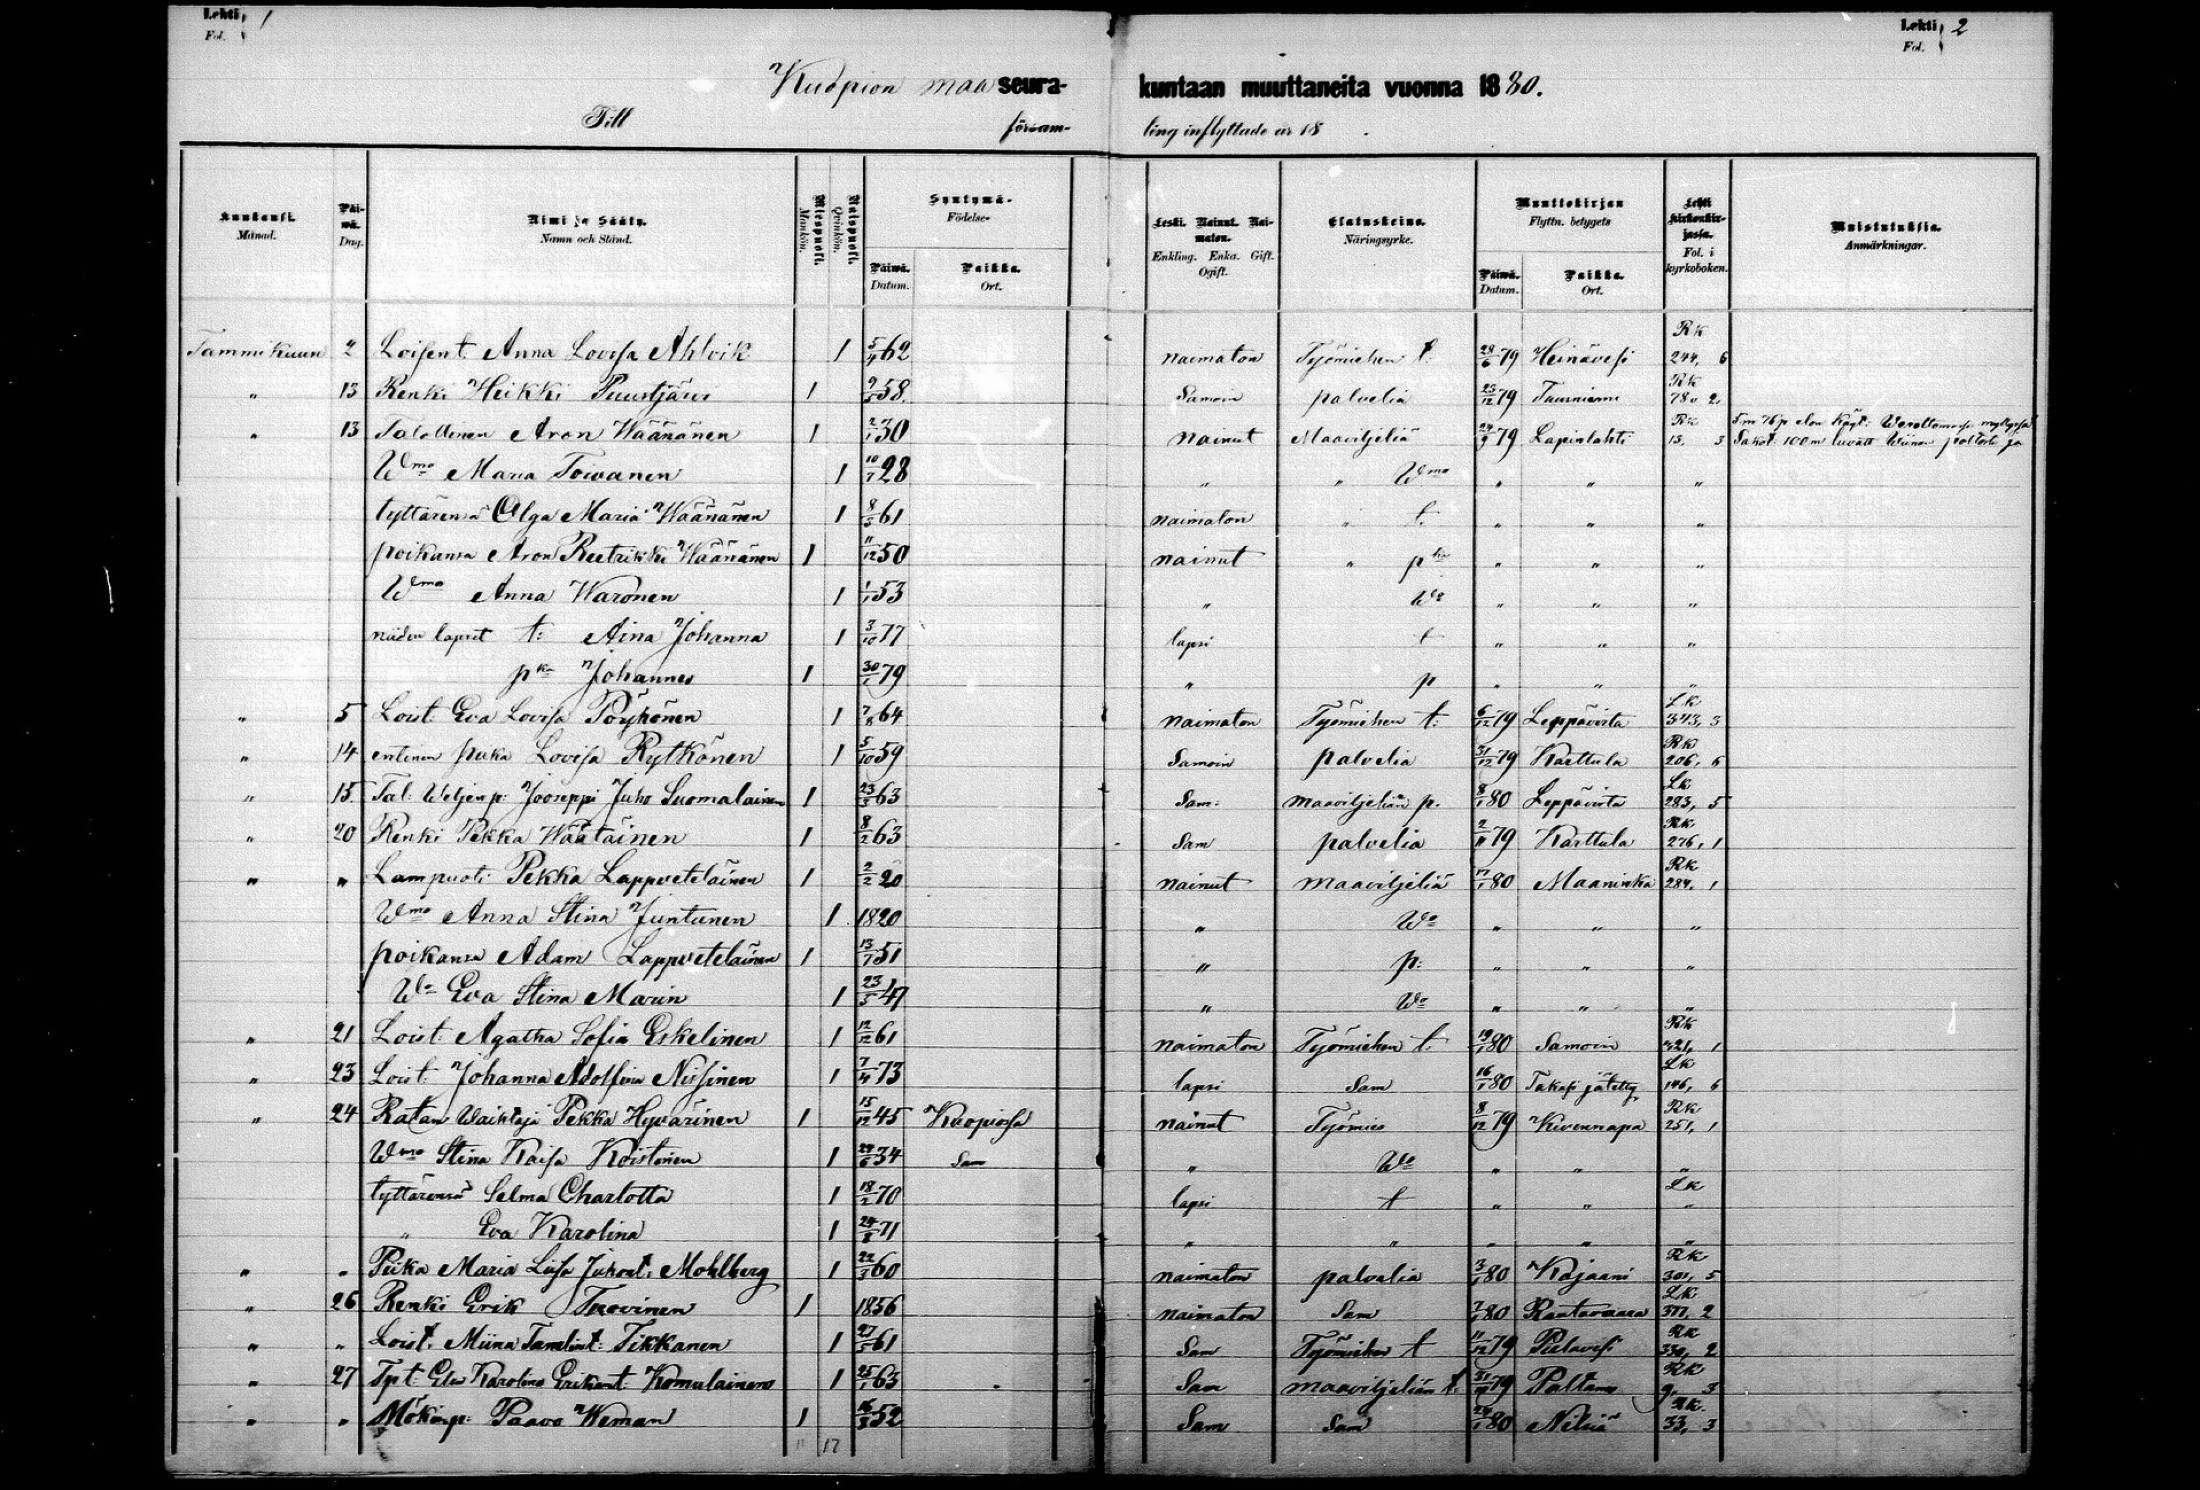 Lehti 1
Fol.
Lehti 2
Fol.
Kuopion maa seura- kuntaan muuttaneita vuonna 1880.
Till församling inflyttade år 18 .
Kuukausi. Månad.
Päiwä. Dag.
Nimi ja Sääty. Namn och Stånd.
Miespuoli. Mankön.
Naispuoli. Qvinkön.
Syntymä- Födelse-
Päiwä. Datum.
Paikka. Ort.
Leski. Nainut. Naimaton. Enkling. Enka. Gift. Ogift.
Elatuskeino. Näringsyrke.
Muuttokirjan Flyttn. betygets
Päiwä. Datum.
Paikka. Ort.
Lehti kirkonkirjassa. Fol. i kyrkoboken.
Muistutuksia. Anmärkningar.
Tammikuun 2 Loisent. Anna Lovisa Ahlvik 1 5/4 62 naimaton Työmiehen t: 28/6 79 Heinävesi Rk 244, 6
" 13 Renki Heikki Puustjärvi 1 9/5 58. Samoin palvelia 25/12 79 Rk 780 2,
" 13 Talollinen Aron Wäänänen 1 2/1 30 nainut Maaviljeliä 24/9 79 Lapinlahti Rk 13, 3 Sakot: 100 m
Wmo Maria Toivanen 1 10/7 28 " " Wmo " " "
tyttärensä Olga Maria Wäänänen 1 8/5 61 naimaton " t. " " "
poikansa Aron Reetrikki Wäänänen 1 11/12 50 nainut " pka " " "
Wmo Anna Waronen 1 1/1 53 " Wo " " "
näiden lapset t: Aina Johanna 1 3/10 77 lapsi t " " "
pka Johannes 1 30/1 79 " p " " "
" 5 Loist. Eva Lovisa Pöyhönen 1 7/8 64 naimaton Työmiehen t: 6/12 79 Leppävirta Lk 343, 3
" 14 entinen piika Lovisa Rytkönen 1 5/10 59 Samoin palvelia 31/12 79 Karttula Rk 206, 5
" 15. Tal: Weljenp: Jooseppi Juho Suomalainen 1 23/3 63 Sam: maaviljeliän p. 8/1 80 Leppävirta Lk 283, 5
" 20 Renki Pekka Wäätäinen 1 8/2 63 Sam palvelia 2/11 79 Karttula Rk 276, 1
" " Lampuoti Pekka Lappveteläinen 1 2/2 20 nainut maaviljeliä 17/1 80 Maaninka Rk 284, 1
Wmo Anna Stina Juntunen 1 1820 " Wo " " "
poikansa Adam Lappveteläinen 1 13/7 51 " p: " " "
Wo Eva Stina Marin 1 23/5 47 " Wo " " "
" 21 Loist. Agatha Sofia Eskelinen 1 12/12 61 naimaton Työmiehen t. 19/1 80 Samoin Rk 321, 1
" 23 Loist. Johanna Adolfina Nissinen 1 7/4 73 lapsi Sam 16/1 80 Takasi jätetty Lk 146, 6
" 24 Ratan Waihtaja Pekka Hyvärinen 1 15/12 45 Kuopiossa nainut Työmies 8/12 79 Kivennapa Rk 251, 1
Wmo Stina Kaisa Koistonen 1 24/6 34 Sam " Wo " " "
tyttärensä Selma Charlotta 1 18/2 70 lapsi t " " Lk "
" Eva Karolina 1 24/8 71 " " " " "
" " Piika Maria Liisa Juhont. Mohlberg 1 22/3 60 naimaton palvelia 3/1 80 Kajaani Rk 301, 5
" 26 Renki Erik Tuovinen 1 1856 naimaton Sam 7/1 80 Rautavaara Lk 377, 2
" " Loist. Miina Taavetint: Tikkanen 1 27/5 61 Sam Työmiehen t 11/12 79 Pielavesi Rk 330, 2
" 27 Tpt. Karolina Erikint. Komulainen 1 25/1 63 Sam maaviljeliän t. 31/10 79 Paltamo Rk 9, 3
" " Mökinp: Paavo Weman 1 16/3 52 Sam Sam 24/1 80 Nilsiä Rk. 33, 3
11 17